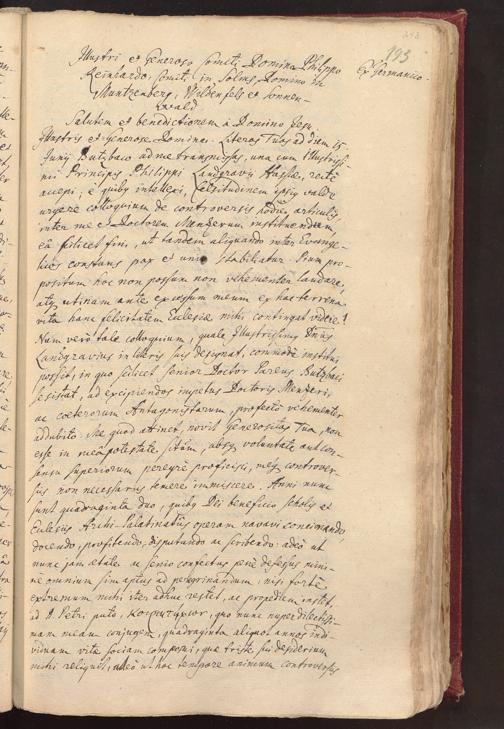 193
Illustri et Generoso Comiti, Domino Philippo
Ex Germanico
Reinhardo, Comiti in Solms, Domino in
Muntzenberg, Wildenfels et Sonnen-
wald.
Salutem et benedictionem à Domino Jesu.
Illustris et Generose Domine. Literas Tuas ad diem 15
Junij Butzbaco ad me transmissas, una cum Illustrissi-
mi Principis Philippi Landgravij Hassiæ, rectè
accepi; è quibus intellexi, Celsitudinem ipsius valdè
urgere colloquium de controversis hodiè articulis,
inter me et Doctorem Menzerum instituendum,
eâ scilicet fini, ut tandem aliquando inter Evange-
licos constans pax et unio stabiliatur. Pium pro-
positum hoc non possum non vehementer laudare,
atque utinam ante excessum meum ex hac terrena
vita hanc felicitatem Ecclesiæ mihi contingat videre!
Nam verò tale colloquium, quale Illustrissimus Dnus
Landgravius in literis suis designat, commodè institui
possit, in quo scilicet senior Doctor Pareus Butzbaci
se sistat, ad excipiendos impetus Doctoris Menzeri
ac cœterorum Antagonistarum, profectò vehementer
addubito. Me quod attinet, novit Generositas Tua, non
esse in meâ potestate situm, absque voluntate aut con-
sensu superiorum peregrè proficisci, neque controver-
sijs non necessarijs temere immiscere. Anni nunc
sunt quadraginta duo, quibus Dei beneficio scholis et
Ecclesijs Archi-Palatinatûs operam navavi concionando,
docendo, profitendo, disputando ac scribendo: adeò ut
nunc jam ætate ac senio confectus penè defessus mini-
me omnium sim aptus ad peregrinandum, nisi fortè
extremum mihi iter adhuc restet, ac propediem instet,
ad D. Petri puto, quo nunc nuper dilectissi-
mam meam conjugem, quadraginta aliquot annos indi-
viduam vitæ sociam composui, quæ triste sui desiderium
mihi reliquit, adeò ut hoc tempore animum controversijs